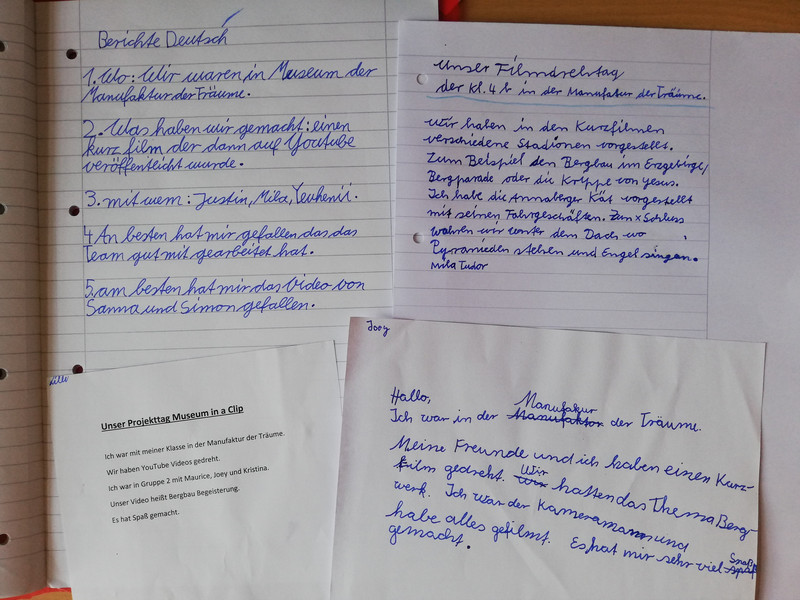 Berichte Deutsch
1. Wo: Wir waren in Museum der
Manufaktur der Träume.
2. Was haben wir gemacht: einen
kurz film der dann auf Youtube
veröffenteicht wurde.
3. mit wem: Justin, Mila, Yevhenii.
4 An besten hat mir gefallen das das
Team gut mit gearbeitet hat.
5. am besten hat mir das Video von
Sanna und Simon gefallen.
Unser Filmdrehtag
der Kl. 4 b in der Manufaktur der Träume.
Wir haben in den Kurzfilmen
verschiedene Stadionen vorgestellt.
Zum Beispiel den Bergbau im Erzgebirge,
Bergparade oder die Krippe von Jesus.
Ich habe die Annaberger Kät vorgestellt
mit seinen Fahrgeschäften. Zun x Schluss
wahren wir unter dem Dach wo
Pyramieden stehen und Engel singen.
Mila Tudor
Lilli
Unser Projekttag Museum in a Clip
Ich war mit meiner Klasse in der Manufaktur der Träume.
Wir haben YouTube Videos gedreht.
Ich war in Gruppe 2 mit Maurice, Joey und Kristina.
Unser Video heißt Bergbau Begeisterung.
Es hat Spaß gemacht.
Joey
Hallo,
Manufakur
Ich war in der Manufaktor der Träume.
Meine Freunde und ich haben einen Kurz-
film gedreht. Wir hatten das Thema Berg-
werk. Ich war der Kameramann und
habe alles gefilmt. Es hat mir sehr viel Spaß
gemacht.